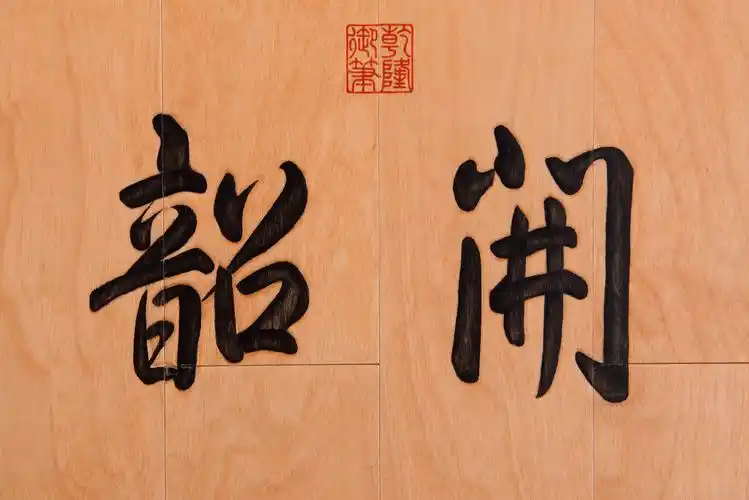 乾隆御筆
開韶